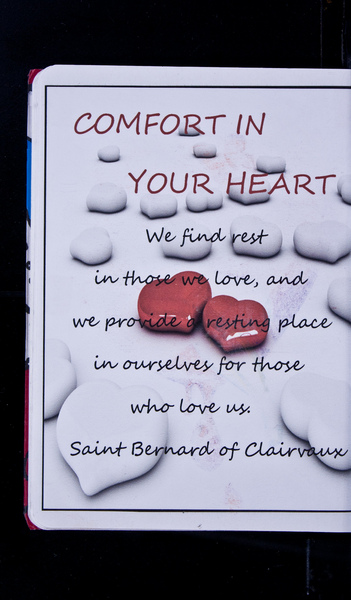 COMFORT IN
YOUR HEART
We find rest
in those we love, and
we provide a resting place
in ourselves for those
who love us.
Saint Bernard of Clairvaux